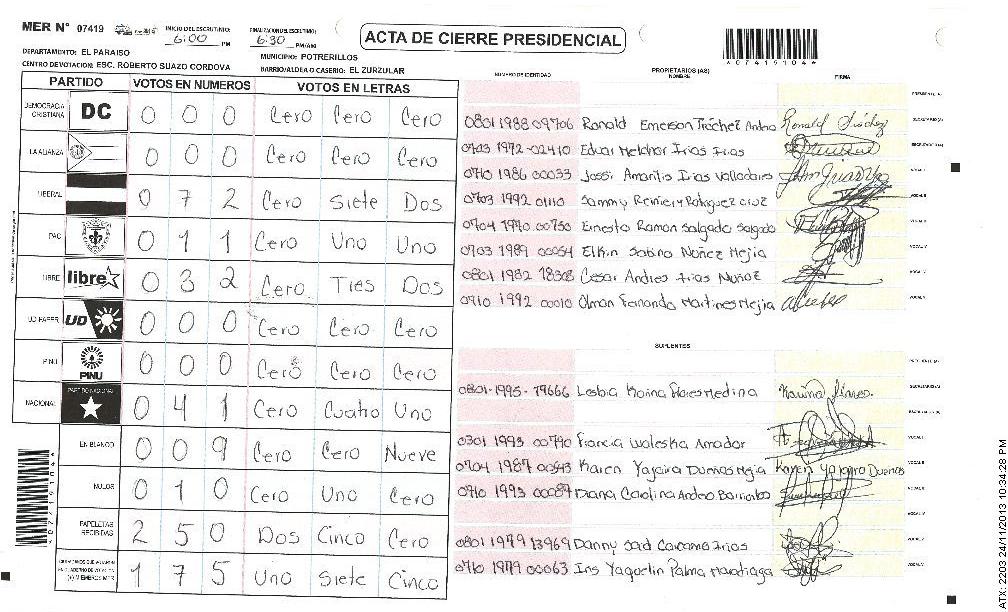 MER N° 07419
INICIO DEL ESCRUTINIO: 6:00 PM
FINALIZACION DEL ESCRUTINIO: 6:30 PM/AM
ACTA DE CIERRE PRESIDENCIAL
*07419104*
DEPARTAMENTO: EL PARAISO
MUNICIPIO: POTRERILLOS
CENTRO DE VOTACION: ESC. ROBERTO SUAZO CORDOVA
BARRIO/ALDEA O CASERIO: EL ZURZULAR
PARTIDO VOTOS EN NUMEROS VOTOS EN LETRAS
DEMOCRACIA CRISTIANA DC 0 0 0 Cero Cero Cero
LA ALIANZA 0 0 0 Cero Cero Cero
LIBERAL 0 7 2 Cero Siete Dos
PAC 0 1 1 Cero Uno Uno
LIBRE libre 0 3 2 Cero Tres Dos
UD-FAPER UD 0 0 0 Cero Cero Cero
PINU PINU 0 0 0 Cero Cero Cero
NACIONAL PARTIDO NACIONAL 0 4 1 Cero Cuatro Uno
EN BLANCO 0 0 9 Cero Cero Nueve
NULOS 0 1 0 Cero Uno Cero
PAPELETAS RECIBIDAS 2 5 0 Dos Cinco Cero
1 7 5 Uno Siete Cinco
NUMERO DE IDENTIDAD PROPIETARIOS (AS) NOMBRE FIRMA
0801 1988 09706 Ronald Emerson
0703 1972 02410 Edwar Melchor Irias Irias
0710 1986 00033 Jossi Amarilis Irias Valladares
0703 1992 01110 Sammy Reiniery Rodriguez cruz
0704 1990 00750 Ernesto Ramon Salgado Salgado
0703 1989 00054 Elkin Sabino Nuñez Mejia
0801 1982 18308 Cesar Andres Irias Nuñoz
0710 1992 00010 Olman Fernando Martines Mejia
SUPLENTES
0801-1995-79666 Lesbia Karina Flores Medina
0301 1993 00790 Francia Waleska Amador
0704 1987 00543 Karen Yajaira Dueñas Mejia Karen Yajaira Dueñas
0710 1993 00089 Diana Carolina Andino Barrientos
0801 1979 13969 Danny Said Carcamo Irias
0710 1979 00063 Iris Yaquelin Palma Mondragon
*07419104*
ATX: 2203 24/11/2013 10:34:28 PM